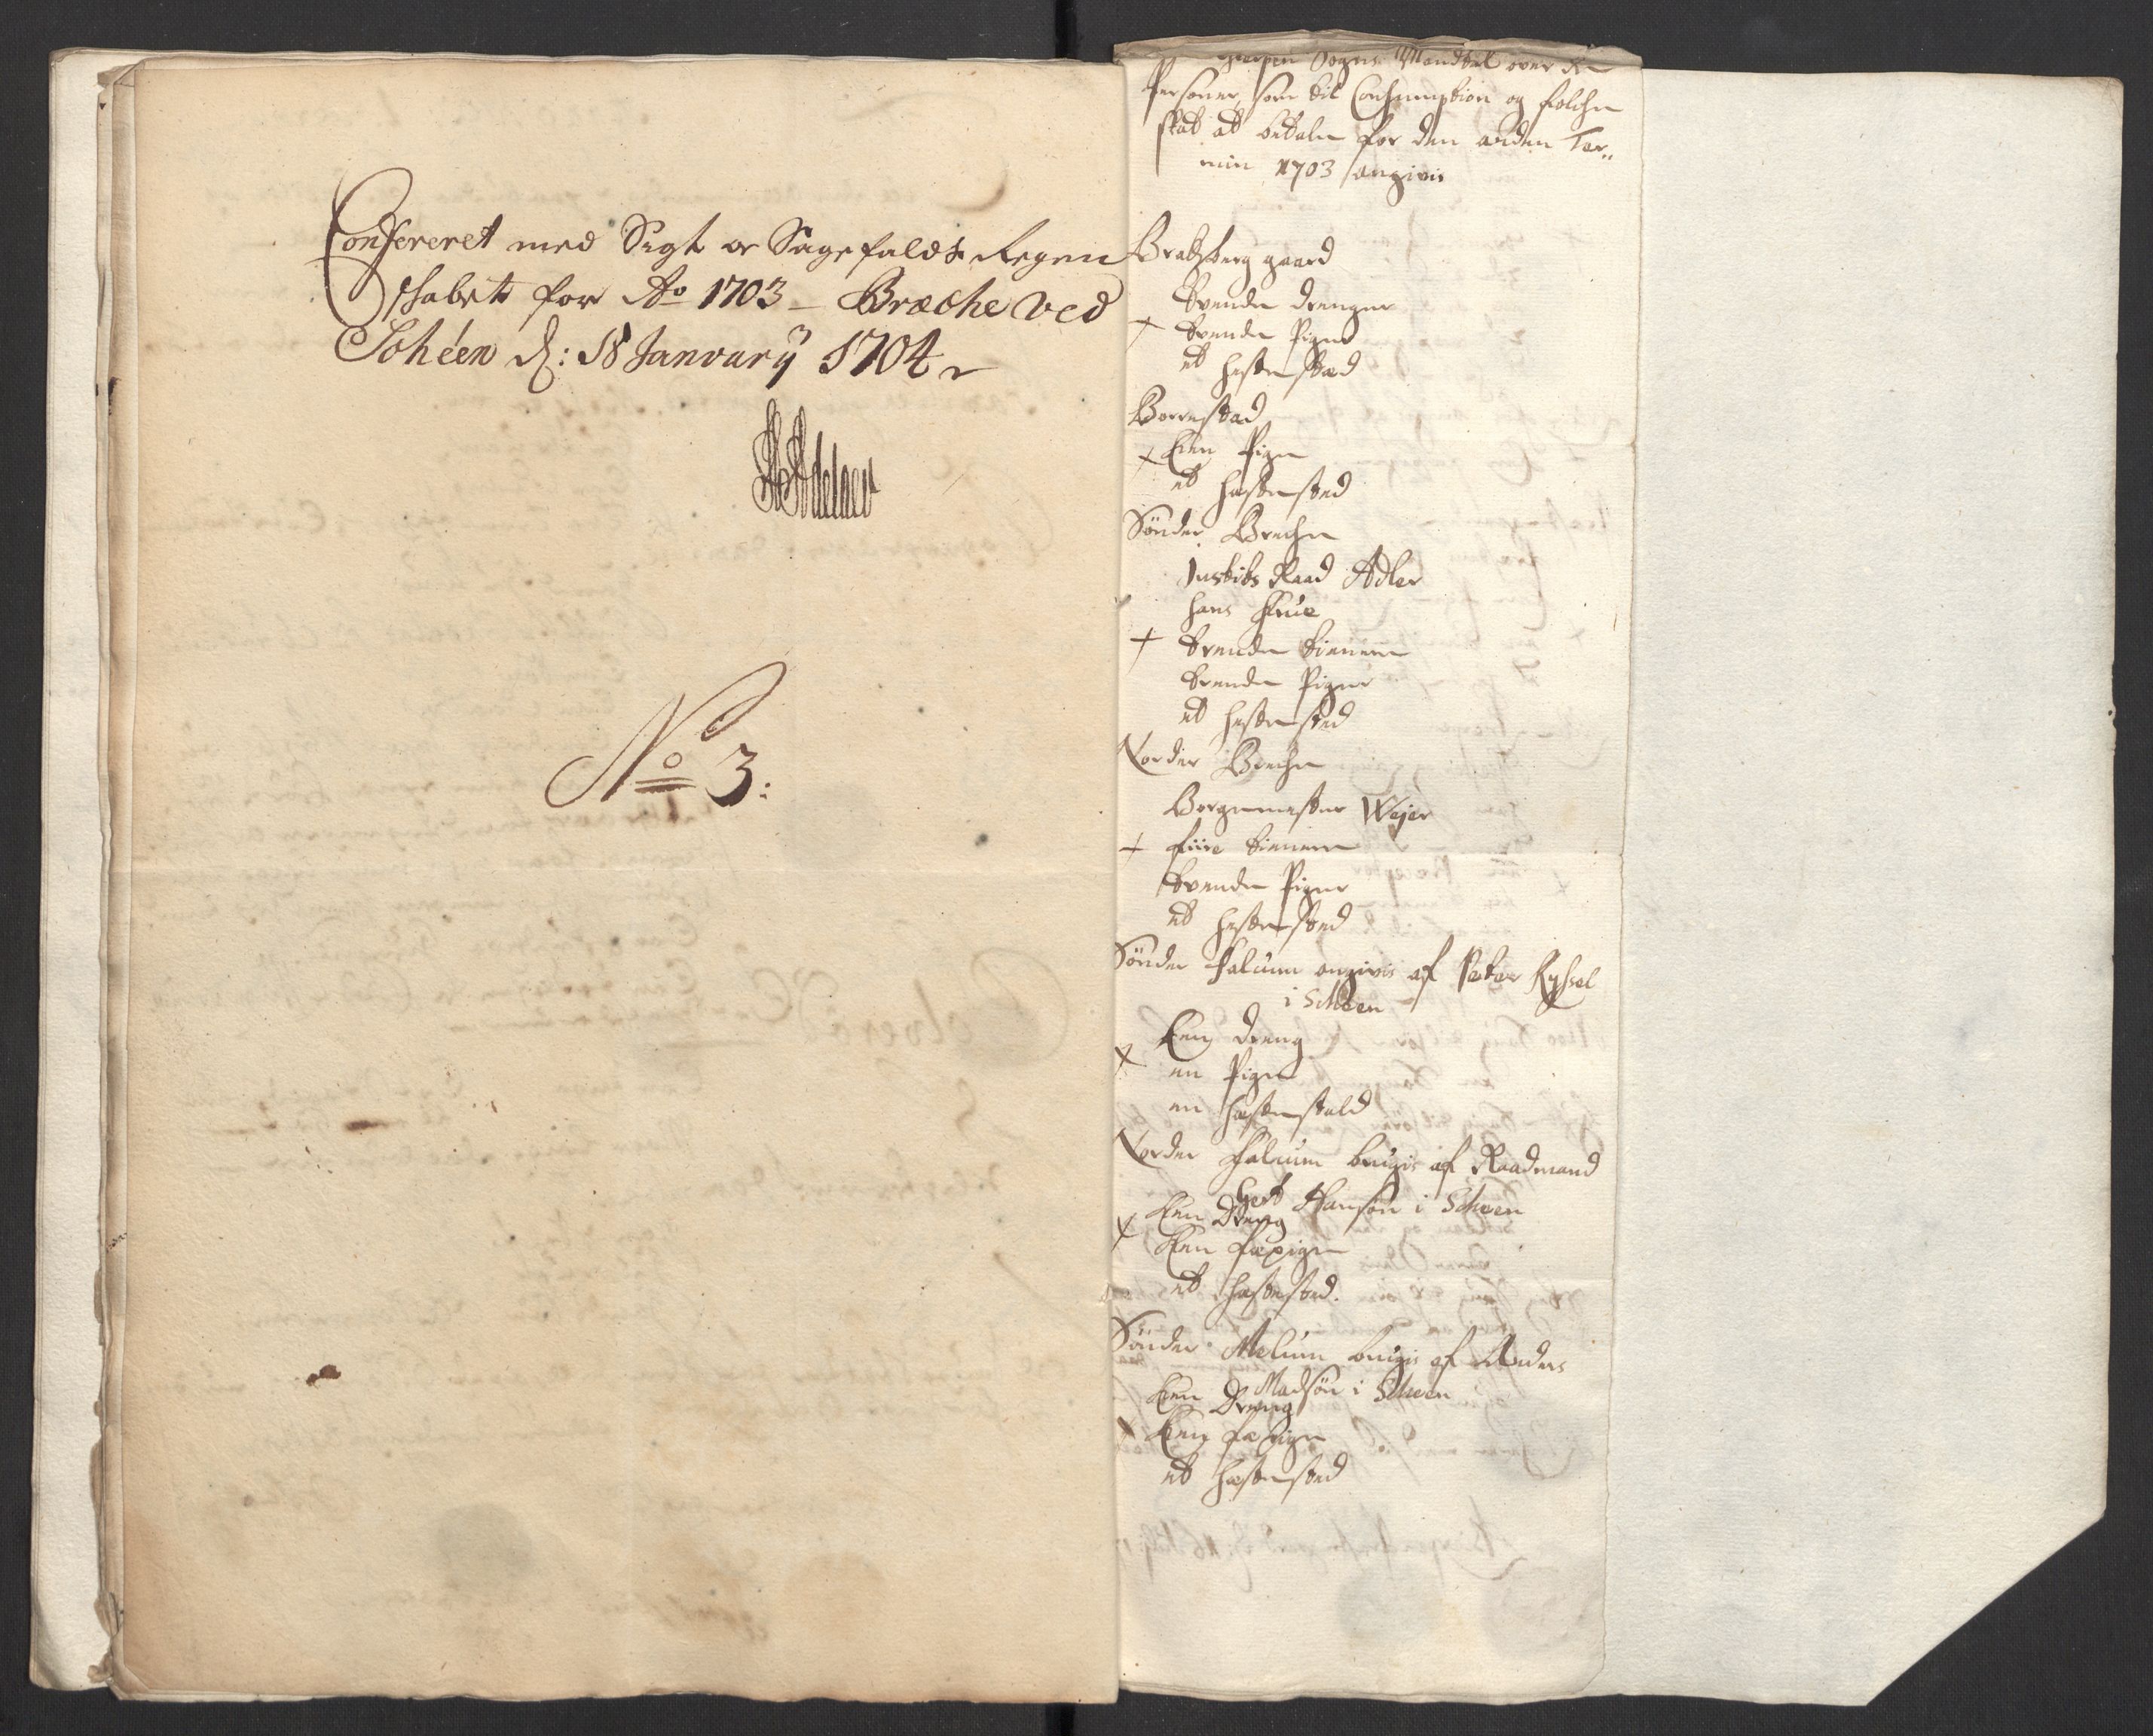 Confereret med Sigt oc Sagefalds Regen
schabet for Ao 1703 – Bræche ved
Schéen d: 18 Januarij 1704
Adelaer
No 3:
Gierpen Sogns Mandtal over de
Personer, som til Consumption og folche
skat at betale for den anden Ter„
min 1703 angivis
Bratzberg gaard
tvende drenge
+ tvende Piger
et hestested
Borrestad
+ Een Pige
et hestested
Sönder Breche
Justits Raad Adler
hans Frue
+ tvende tienere
tvende Piger
et hestested
Norder Breche
Borgemester Wejer
+ fiire tienere
tvende Piger
et hestested
Sönder Falum angivis af Peter
i Scheen
Een dreng
+ en Pige
en hestestald
Norder Falcum brugis af Raadmand
Gert Hansøn i Scheen
Een Dreng
+ Een fæpige
et hestested.
Sönder Melum brugis af Anders
Madsøn i Scheen
Een Dreng
+ Een fæpige
et hestested